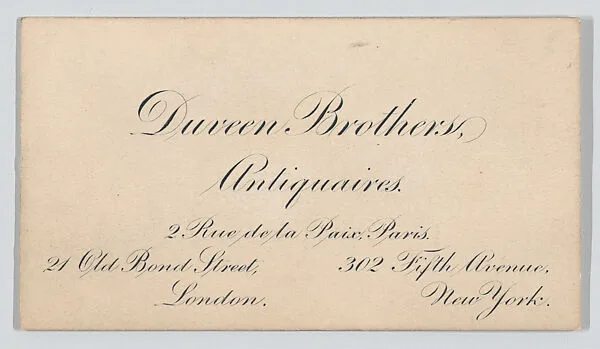 Duveen Brothers,
Antiquaires.
2 Rue de la Paix, Paris.
21 Old Bond Street, 302 Fifth Avenue,
London. New York.